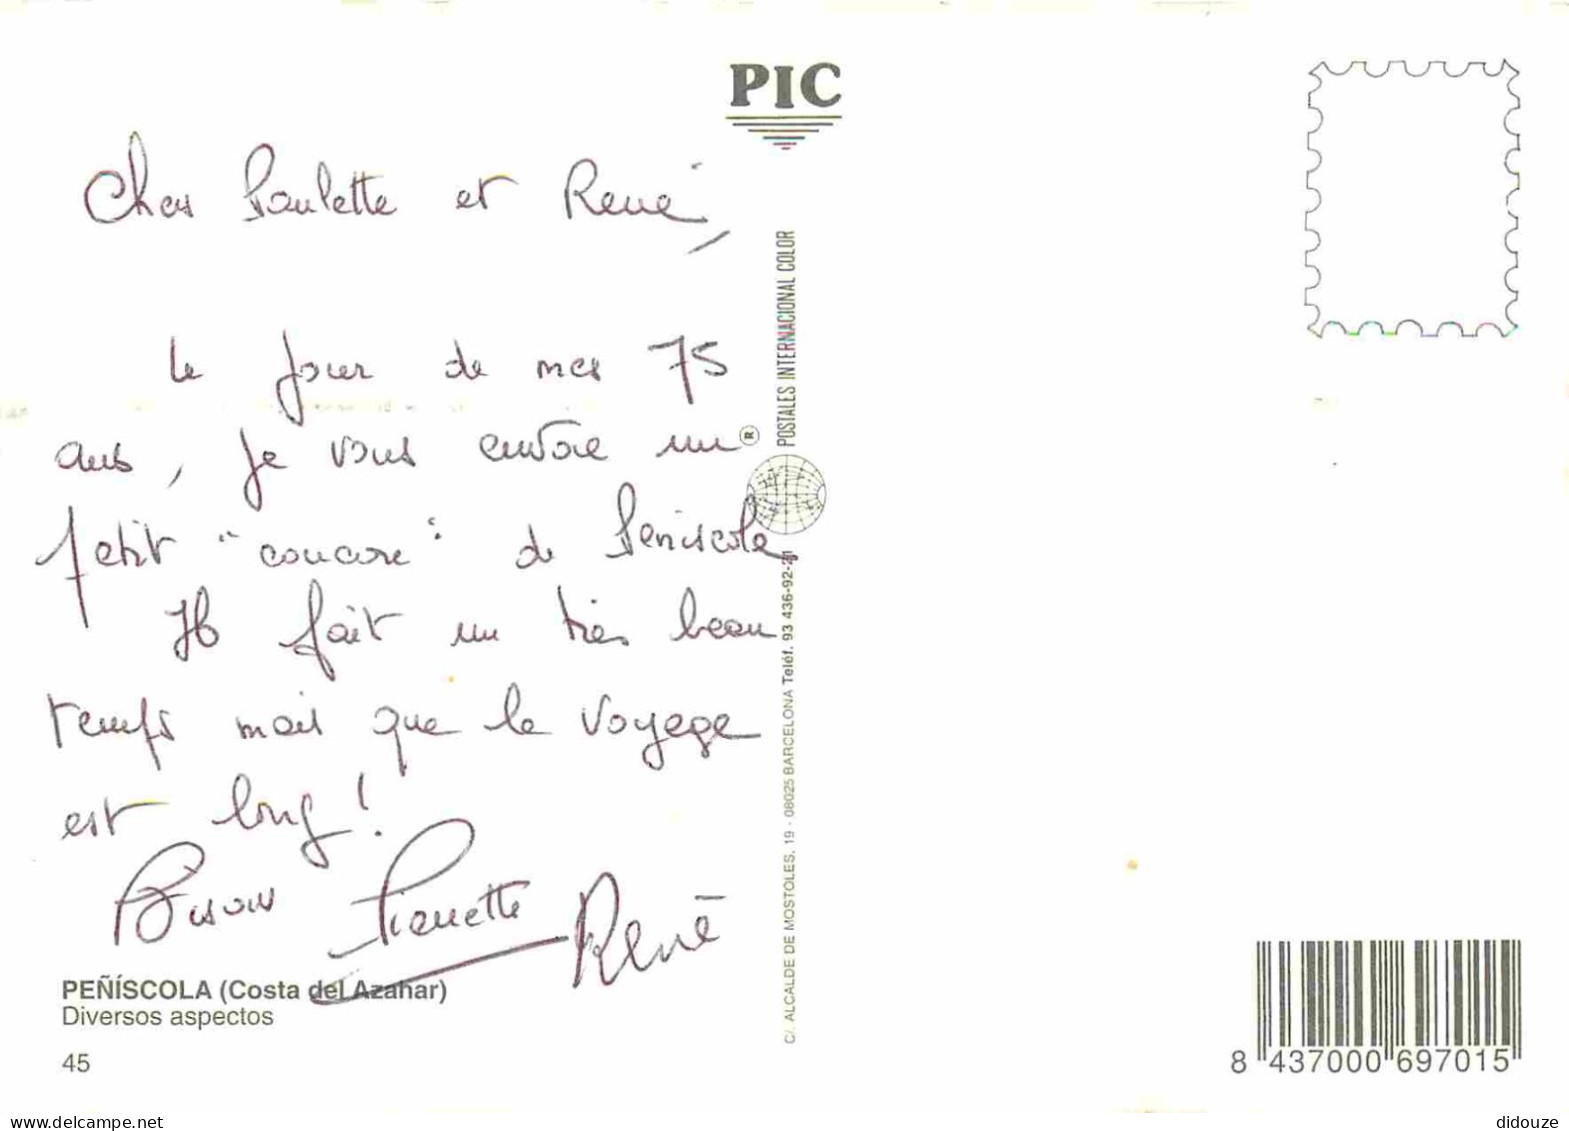 PIC
Chers Paulette et René,
le jour de mes 75
ans, je vous envoie un
petit "coucou" de Peniscola
Il fait un très beau
temps mais que le voyage
est long !
Bisous Pierrette René
PEÑÍSCOLA (Costa del Azahar)
Diversos aspectos
45
C/. ALCALDE DE MOSTOLES, 19 - 08025 BARCELONA Teléf. 93 436-92-21
® POSTALES INTERNACIONAL COLOR
8 437000 697015
delcampe.net
didouze